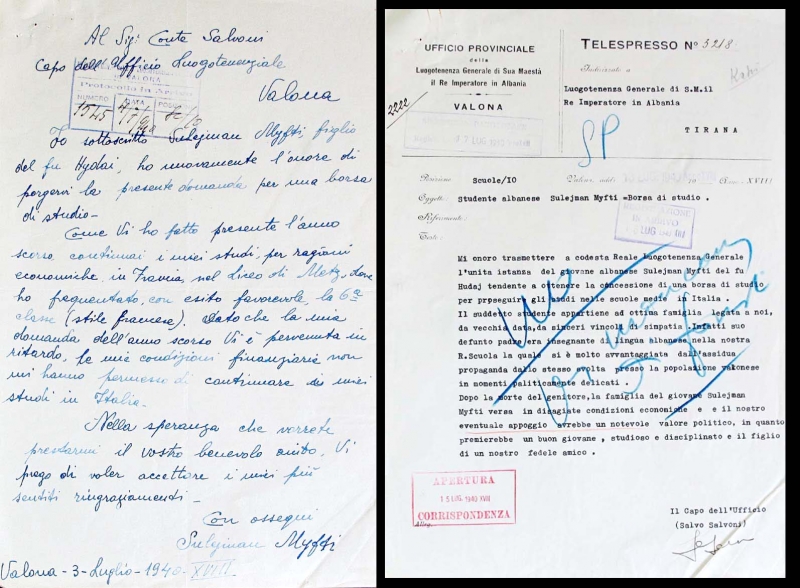 Al Sig. Conte Salvoni
Capo dell'Ufficio Luogotenenziale
VALONA
NUMERO
DATA
1545
Valona
Io sottoscritto Sulejman Myfti, figlio
del fu Hydai, ho nuovamente l'onore di
porgervi la presente domanda per una borsa
di studio-
Come Vi ho fatto presente l'anno
scorso continuai i miei studi, per ragioni
economiche, in Francia, nel Liceo di Metz, dove
ho frequentato, con esito favorevole, la 6a
classe (stile francese). Dato che la mia
domanda dell'anno scorso Vi è pervenuta in
ritardo, le mie condizioni finanziarie non
mi hanno permesso di continuare i miei
studi in Italia.
Nella speranza che vorrete
prestarmi il vostro benevolo aiuto, Vi
prego di voler accettare i miei più
sentiti ringraziamenti-
Con ossequi
Sulejman Myfti
Valona-3-Luglio-1940-XVIII
UFFICIO PROVINCIALE
della
Luogotenenza Generale di Sua Maestà
il Re Imperatore in Albania
VALONA
2222
TELESPRESSO No 3218
Indirizzato a
Luogotenenza Generale di S.M.il
Re Imperatore in Albania
TIRANA
SP
Posizione Scuole/IO Valona, addì 19 Anno XVIII
Oggetto Studente albanese Sulejman Myfti =Borsa di studio .
Riferimento:
Testo:
Mi onoro trasmettere a codesta Reale Luogotenenza Generale
l'unita istanza del giovane albanese Sulejman Myfti del fu
Hudaj tendente a ottenere la concessione di una borsa di studio
per prseguire gli studi nelle scuole medie in Italia.
Il suddetto studente appartiene ad ottima famiglia legata a noi,
da vecchia data,da sinceri vincoli di simpatia .Infatti suo
defunto padre era insegnante di lingua albanese nella nostra
R.Scuola la quale si è molto avvantaggiata dall'assidua
propaganda dallo stesso svolta presso la popolazione valonese
in nomenti politicamente delicati .
Dopo la morte del genitore,la famiglia del giovane Sulejman
Myfti versa in disagiate condizioni economione e e il nostro
eventuale appoggio avrebbe un notevole valore politico, in quanto
premierebbe un buon giovane , studioso e disciplinato e il figlio
di un nostro fedele amico .
APERTURA
15 LUG. 1940 XVIII
CORRISPONDENZA
Alleg.
Il Capo dell'Ufficio
(Salvo Salvoni)